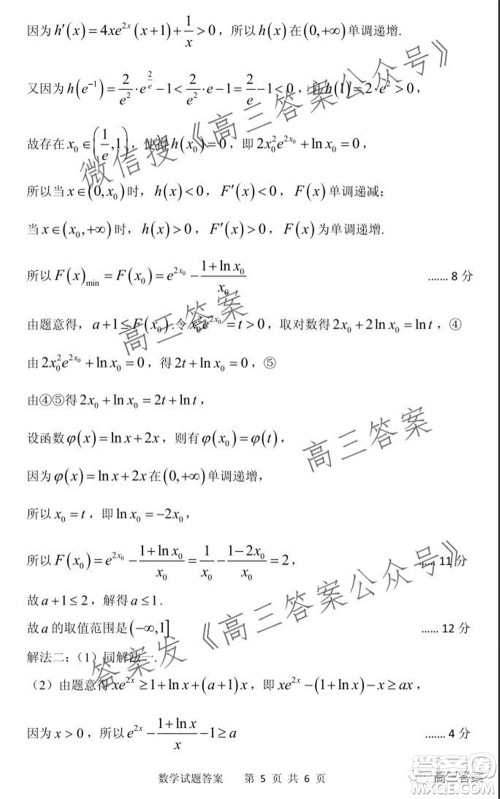 因为h′(x)=4xe^{2x}(x+1)+1/x>0，所以h(x)在(0,+∞)单调递增.
又因为h(e^{-1})=2/e²·e^{2/e}-1<2/e²·e-1=2/e-1<0，h(1)=2·e²>0，
故存在x₀∈(1/e,1)，h(x₀)=0，即2x₀²e^{2x₀}+ln x₀=0，
所以当x∈(0,x₀)时，h(x)<0，F′(x)<0，F(x)单调递减；
当x∈(x₀,+∞)时，h(x)>0，F′(x)>0，F(x)为单调递增.
所以F(x)_{min}=F(x₀)=e^{2x₀}-(1+ln x₀)/x₀ ……. 8 分
由题意得，a+1≤F(x₀).令x₀²e^{2x₀}=t>0，取对数得2x₀+2ln x₀=ln t，④
由2x₀²e^{2x₀}+ln x₀=0，得2t+ln x₀=0，⑤
由④⑤得2x₀+ln x₀=2t+ln t，
设函数φ(x)=ln x+2x，则有φ(x₀)=φ(t)，
因为φ(x)=ln x+2x在(0,+∞)单调递增，
所以x₀=t，即ln x₀=-2x₀，
所以F(x₀)=e^{2x₀}-(1+ln x₀)/x₀=1/x₀-(1-2x₀)/x₀=2，…… 11 分
故a+1≤2，解得a≤1.
故a的取值范围是(-∞,1] …… 12 分
解法二：（1）同解法一.
（2）由题意得xe^{2x}≥1+ln x+(a+1)x，即xe^{2x}-(1+ln x)-x≥ax，
因为x>0，所以e^{2x}-(1+ln x)/x-1≥a ……. 4 分
数学试题答案 第 5 页 共 6 页
微信搜《高三答案公众号》
高三答案
高三答案
答案发《高三答案公众号》
高三答案